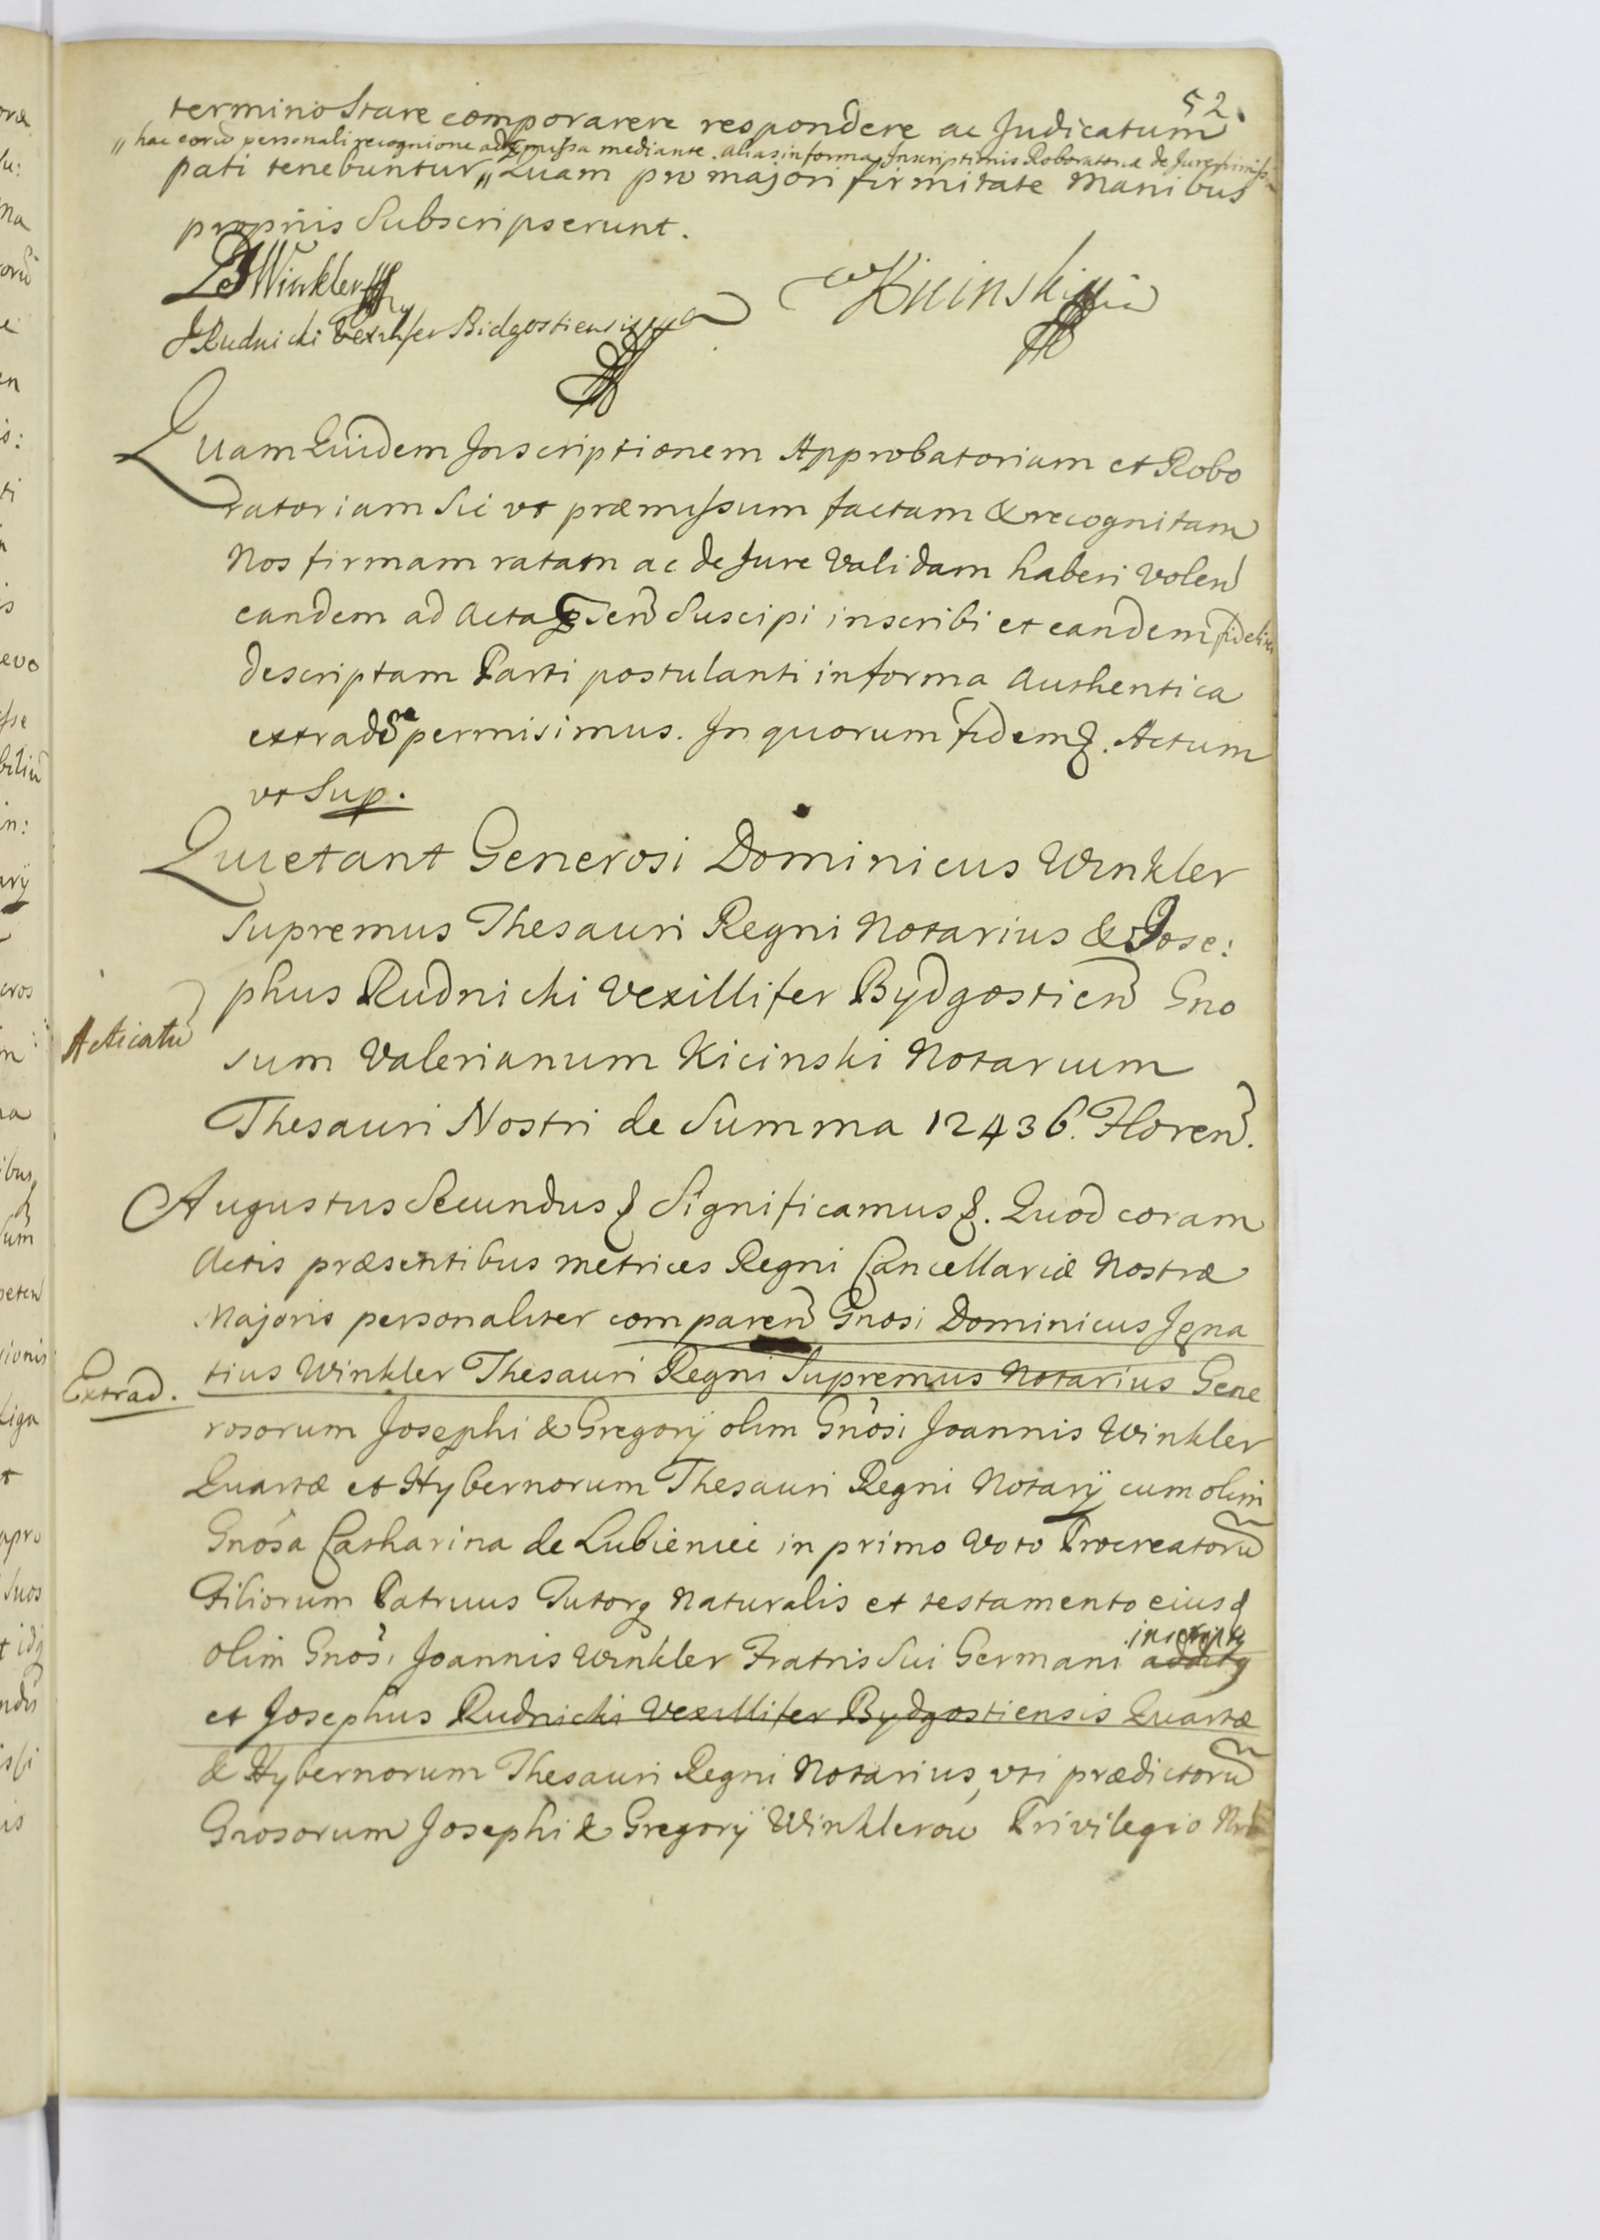 52.
termino Stare comporarere respondere ac Judicatum
„ hac eorū personali recognitione ad præmissa mediante. alias in forma Inscriptionis Roboratoriæ de Jure
pati tenebuntur „ Quam pro majori firmitate Manibus
proprijs Subscripserunt.
DJWinkler
Kicinski
JRudnicki Vexilifer Bidgostiensis
Quam Quidem Inscriptionem Approbatoriam et Robo
ratoriam Sic vt præmissum factam & recognitam
Nos firmam ratam ac de Jure Validam haberi Volen
eandem ad Acta præsen Suscipi inscribi et eandem fideliter
descriptam Parti postulanti in forma Authentica
extradi permisimus. In quorum fidem &. Actum
vt Sup.
Quietant Generosi Dominicus Winkler
Supremus Thesauri Regni Notarius & Jose:
phus Rudnicki Vexillifer Bydgostien Gno
Acticatū
sum Valerianum Kicinski Notarium
Thesauri Nostri de Summa 12436. Floren.
Augustus Secundus & Significamus &. Quod coram
Actis præsentibus metrices Regni Cancellariæ Nostræ
Majoris personaliter comparen Gnosi Dominicus Igna
Extrad.
tius Winkler Thesauri Regni Supremus Notarius Gene
rosorum Josephi & Gregorij olim Gnosi Joannis Winkler
Quartæ et Hybernorum Thesauri Regni Notarij cum olim
Gnosa Catharina de Lubieniec in primo Voto Procreatorū
Filiorum Patruus Tutorq Naturalis et testamento eiusd
olim Gnosi Joannis Winkler Fratris Sui Germani additq
inscriptq
et Josephus Rudnicki Vexillifer Bydgostiensis Quartæ
& Hybernorum Thesauri Regni Notarius, vti prædictorū
Gnosorum Josephi & Gregorij Winklerow Privilegio